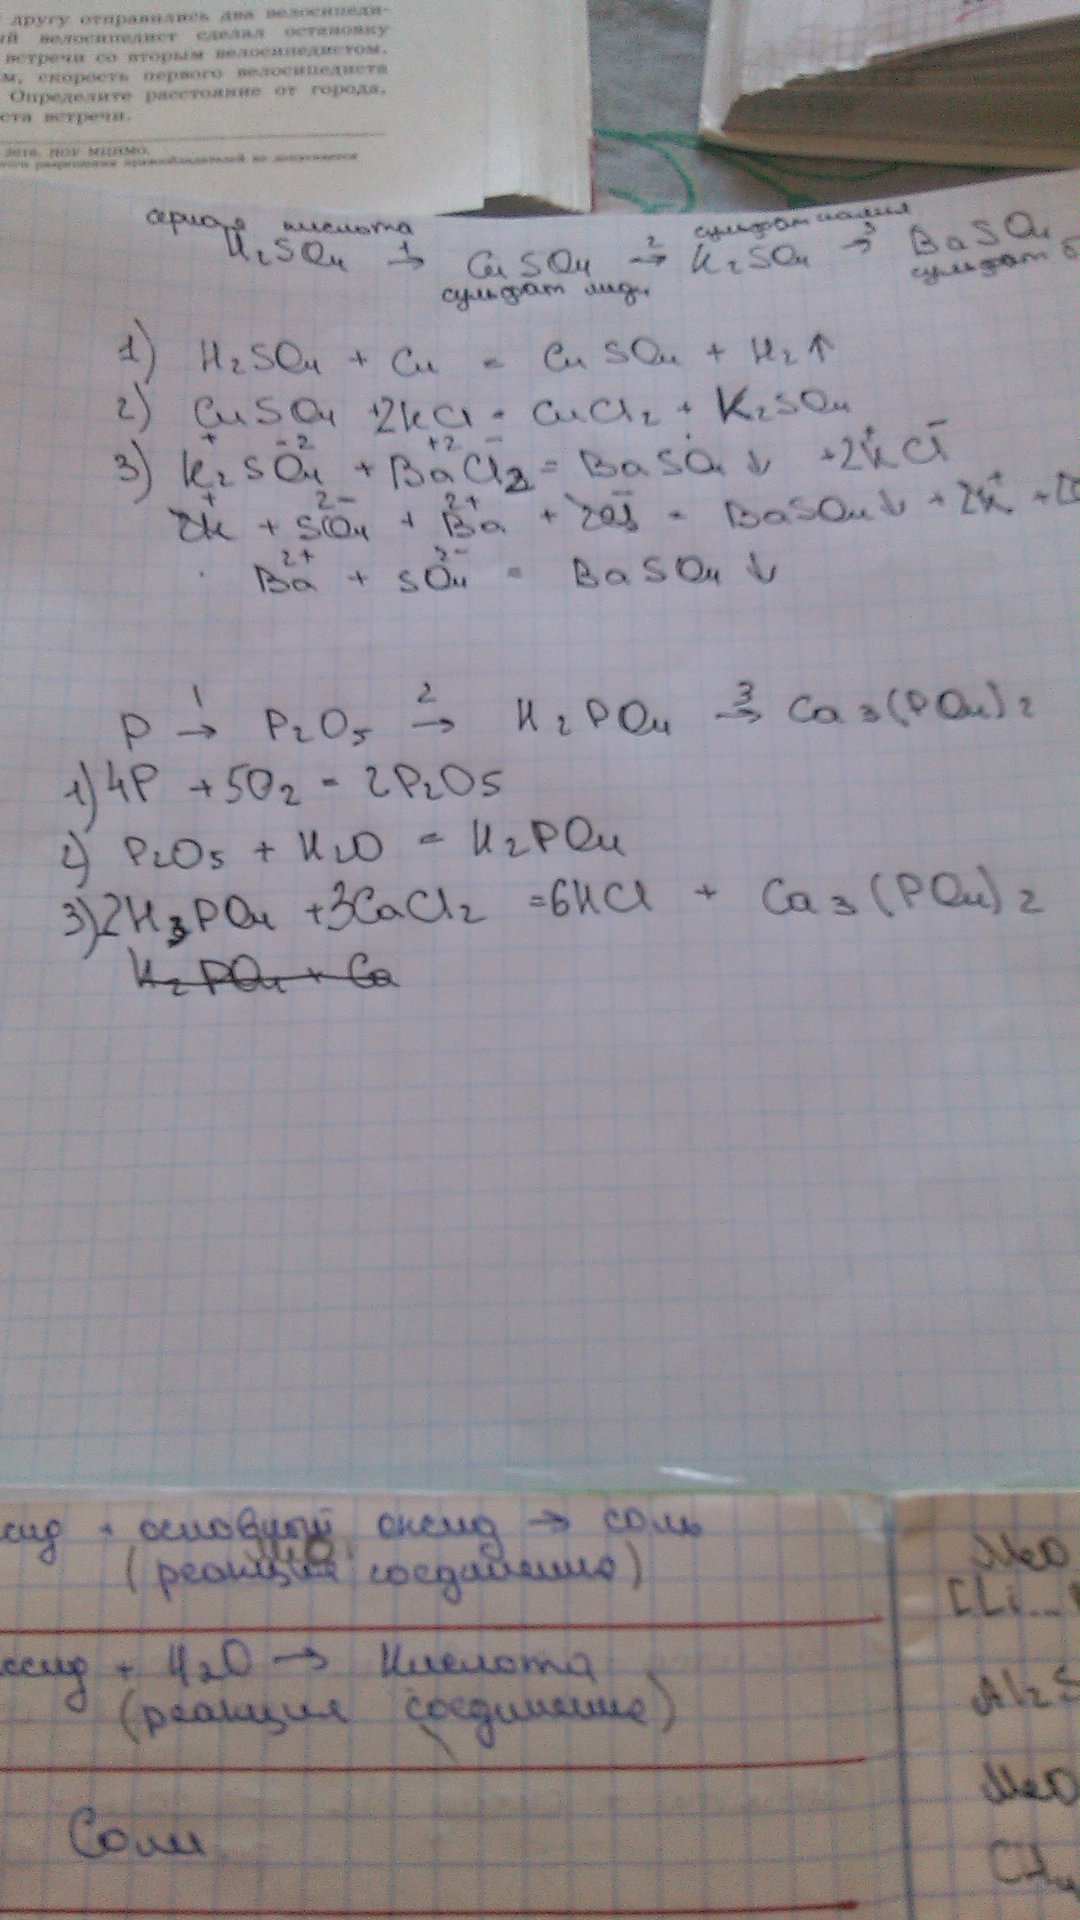 другу отправились два велосипеди-
ый велосипедист сделал остановку
встречи со вторым велосипедистом.
м, скорость первого велосипедиста
Определите расстояние от города,
ста встречи.
2016. НОУ МЦНМО.
ого разрешения правообладателей не допускается
серная кислота сульфат калия
H₂SO₄ 1→ CuSO₄ 2→ K₂SO₄ 3→ BaSO₄
сульфат меди сульфат б
1) H₂SO₄ + Cu = CuSO₄ + H₂↑
2) CuSO₄ +2KCl = CuCl₂ + K₂SO₄
3) K₂⁺SO₄⁻² + Ba⁺²Cl₂⁻ = BaSO₄↓ +2K⁺Cl⁻
2K⁺ + SO₄²⁻ + Ba²⁺ + 2Cl⁻ = BaSO₄↓ + 2K⁺ + 2C
Ba²⁺ + SO₄²⁻ = BaSO₄↓
P 1→ P₂O₅ 2→ H₂PO₄ 3→ Ca₃(PO₄)₂
1) 4P +5O₂ = 2P₂O₅
2) P₂O₅ + H₂O = H₂PO₄
3) 2H₃PO₄ +3CaCl₂ =6HCl + Ca₃(PO₄)₂
H₂PO₄ + Ca
сид + основный оксид → соль
(реакция соединение)
ксид + H₂O → Кислота
(реакция соединение)
Соли
MeO
[Li...
Al₂S
MeO
CH₄